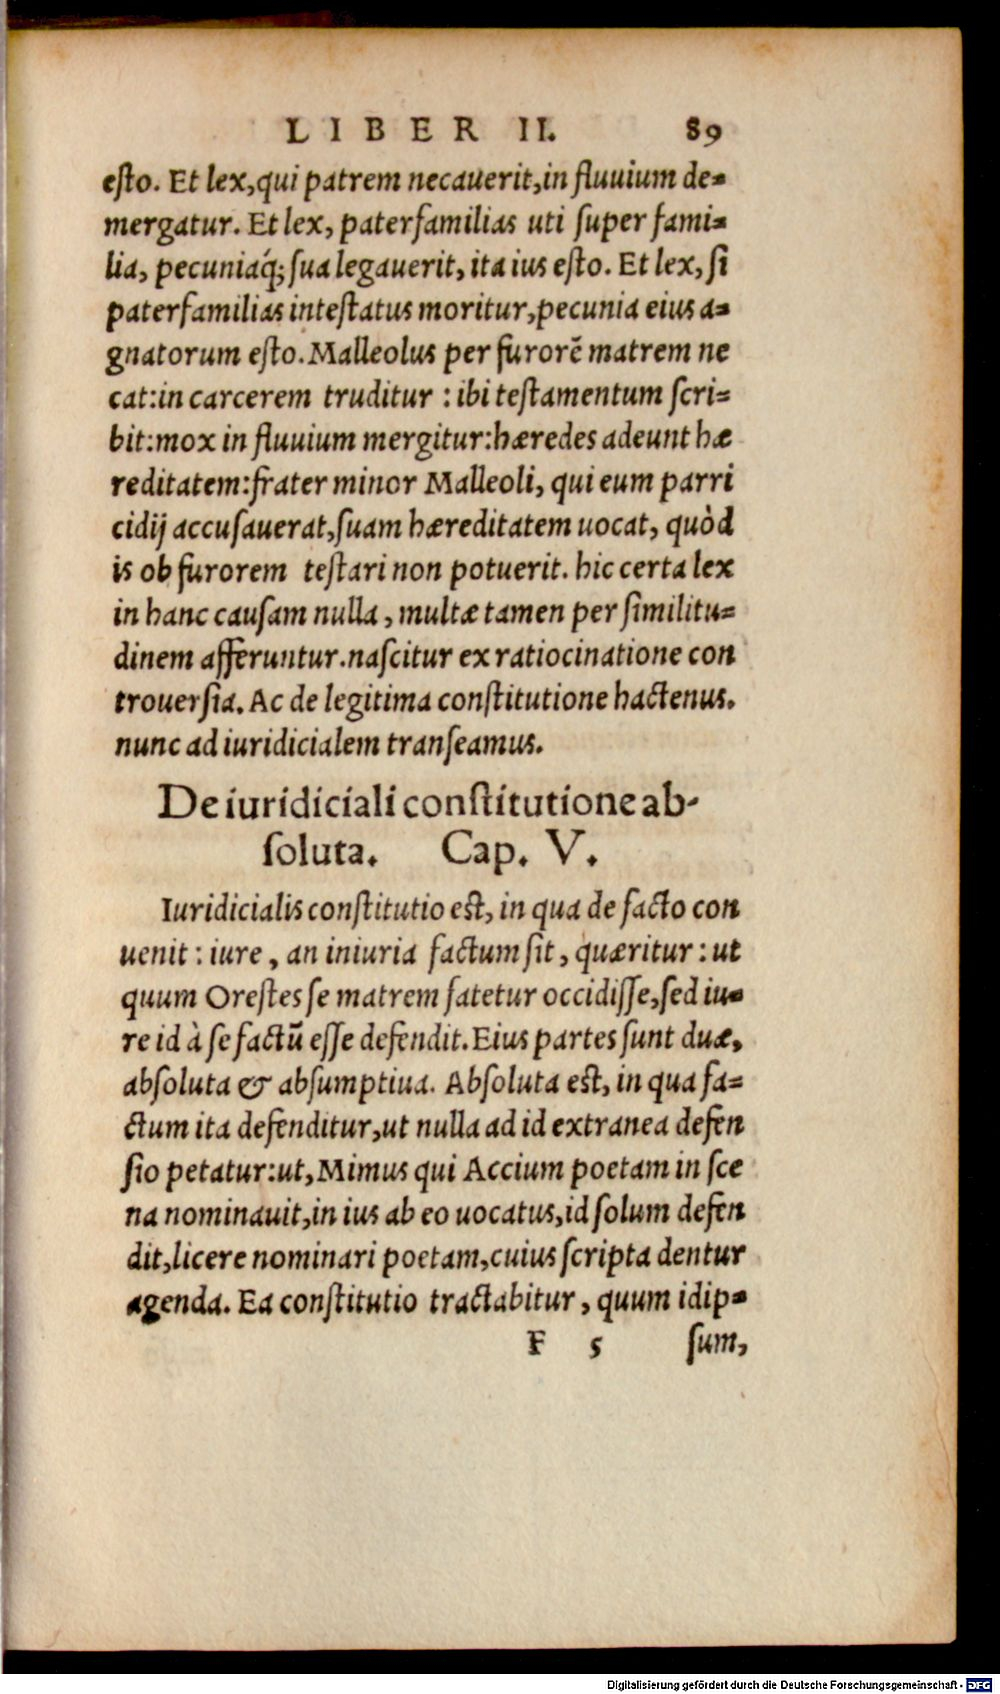 LIBER II. 89
esto. Et lex, qui patrem necauerit, in fluuium de-
mergatur. Et lex, paterfamilias uti super fami-
lia, pecuniaq́; sua legauerit, ita ius esto. Et lex, si
paterfamilias intestatus moritur, pecunia eius a-
gnatorum esto. Malleolus per furorē matrem ne
cat: in carcerem truditur : ibi testamentum scri-
bit: mox in fluuium mergitur: hæredes adeunt hæ
reditatem: frater minor Malleoli, qui eum parri
cidij accusauerat, suam hæreditatem uocat, quòd
is ob furorem testari non potuerit. hic certa lex
in hanc causam nulla, multæ tamen per similitu-
dinem afferuntur. nascitur ex ratiocinatione con
trouersia. Ac de legitima constitutione hactenus.
nunc ad iuridicialem transeamus.
De iuridiciali constitutione ab-
soluta. Cap. V.
Iuridicialis constitutio est, in qua de facto con
uenit : iure, an iniuria factum sit, quæritur : ut
quum Orestes se matrem fatetur occidisse, sed iu-
re id à se factū esse defendit. Eius partes sunt duæ,
absoluta & absumptiua. Absoluta est, in qua fa-
ctum ita defenditur, ut nulla ad id extranea defen
sio petatur: ut, Mimus qui Accium poetam in sce
na nominauit, in ius ab eo uocatus, id solum defen
dit, licere nominari poetam, cuius scripta dentur
agenda. Ea constitutio tractabitur, quum idip-
F 5 sum,
Digitalisierung gefördert durch die Deutsche Forschungsgemeinschaft - DFG